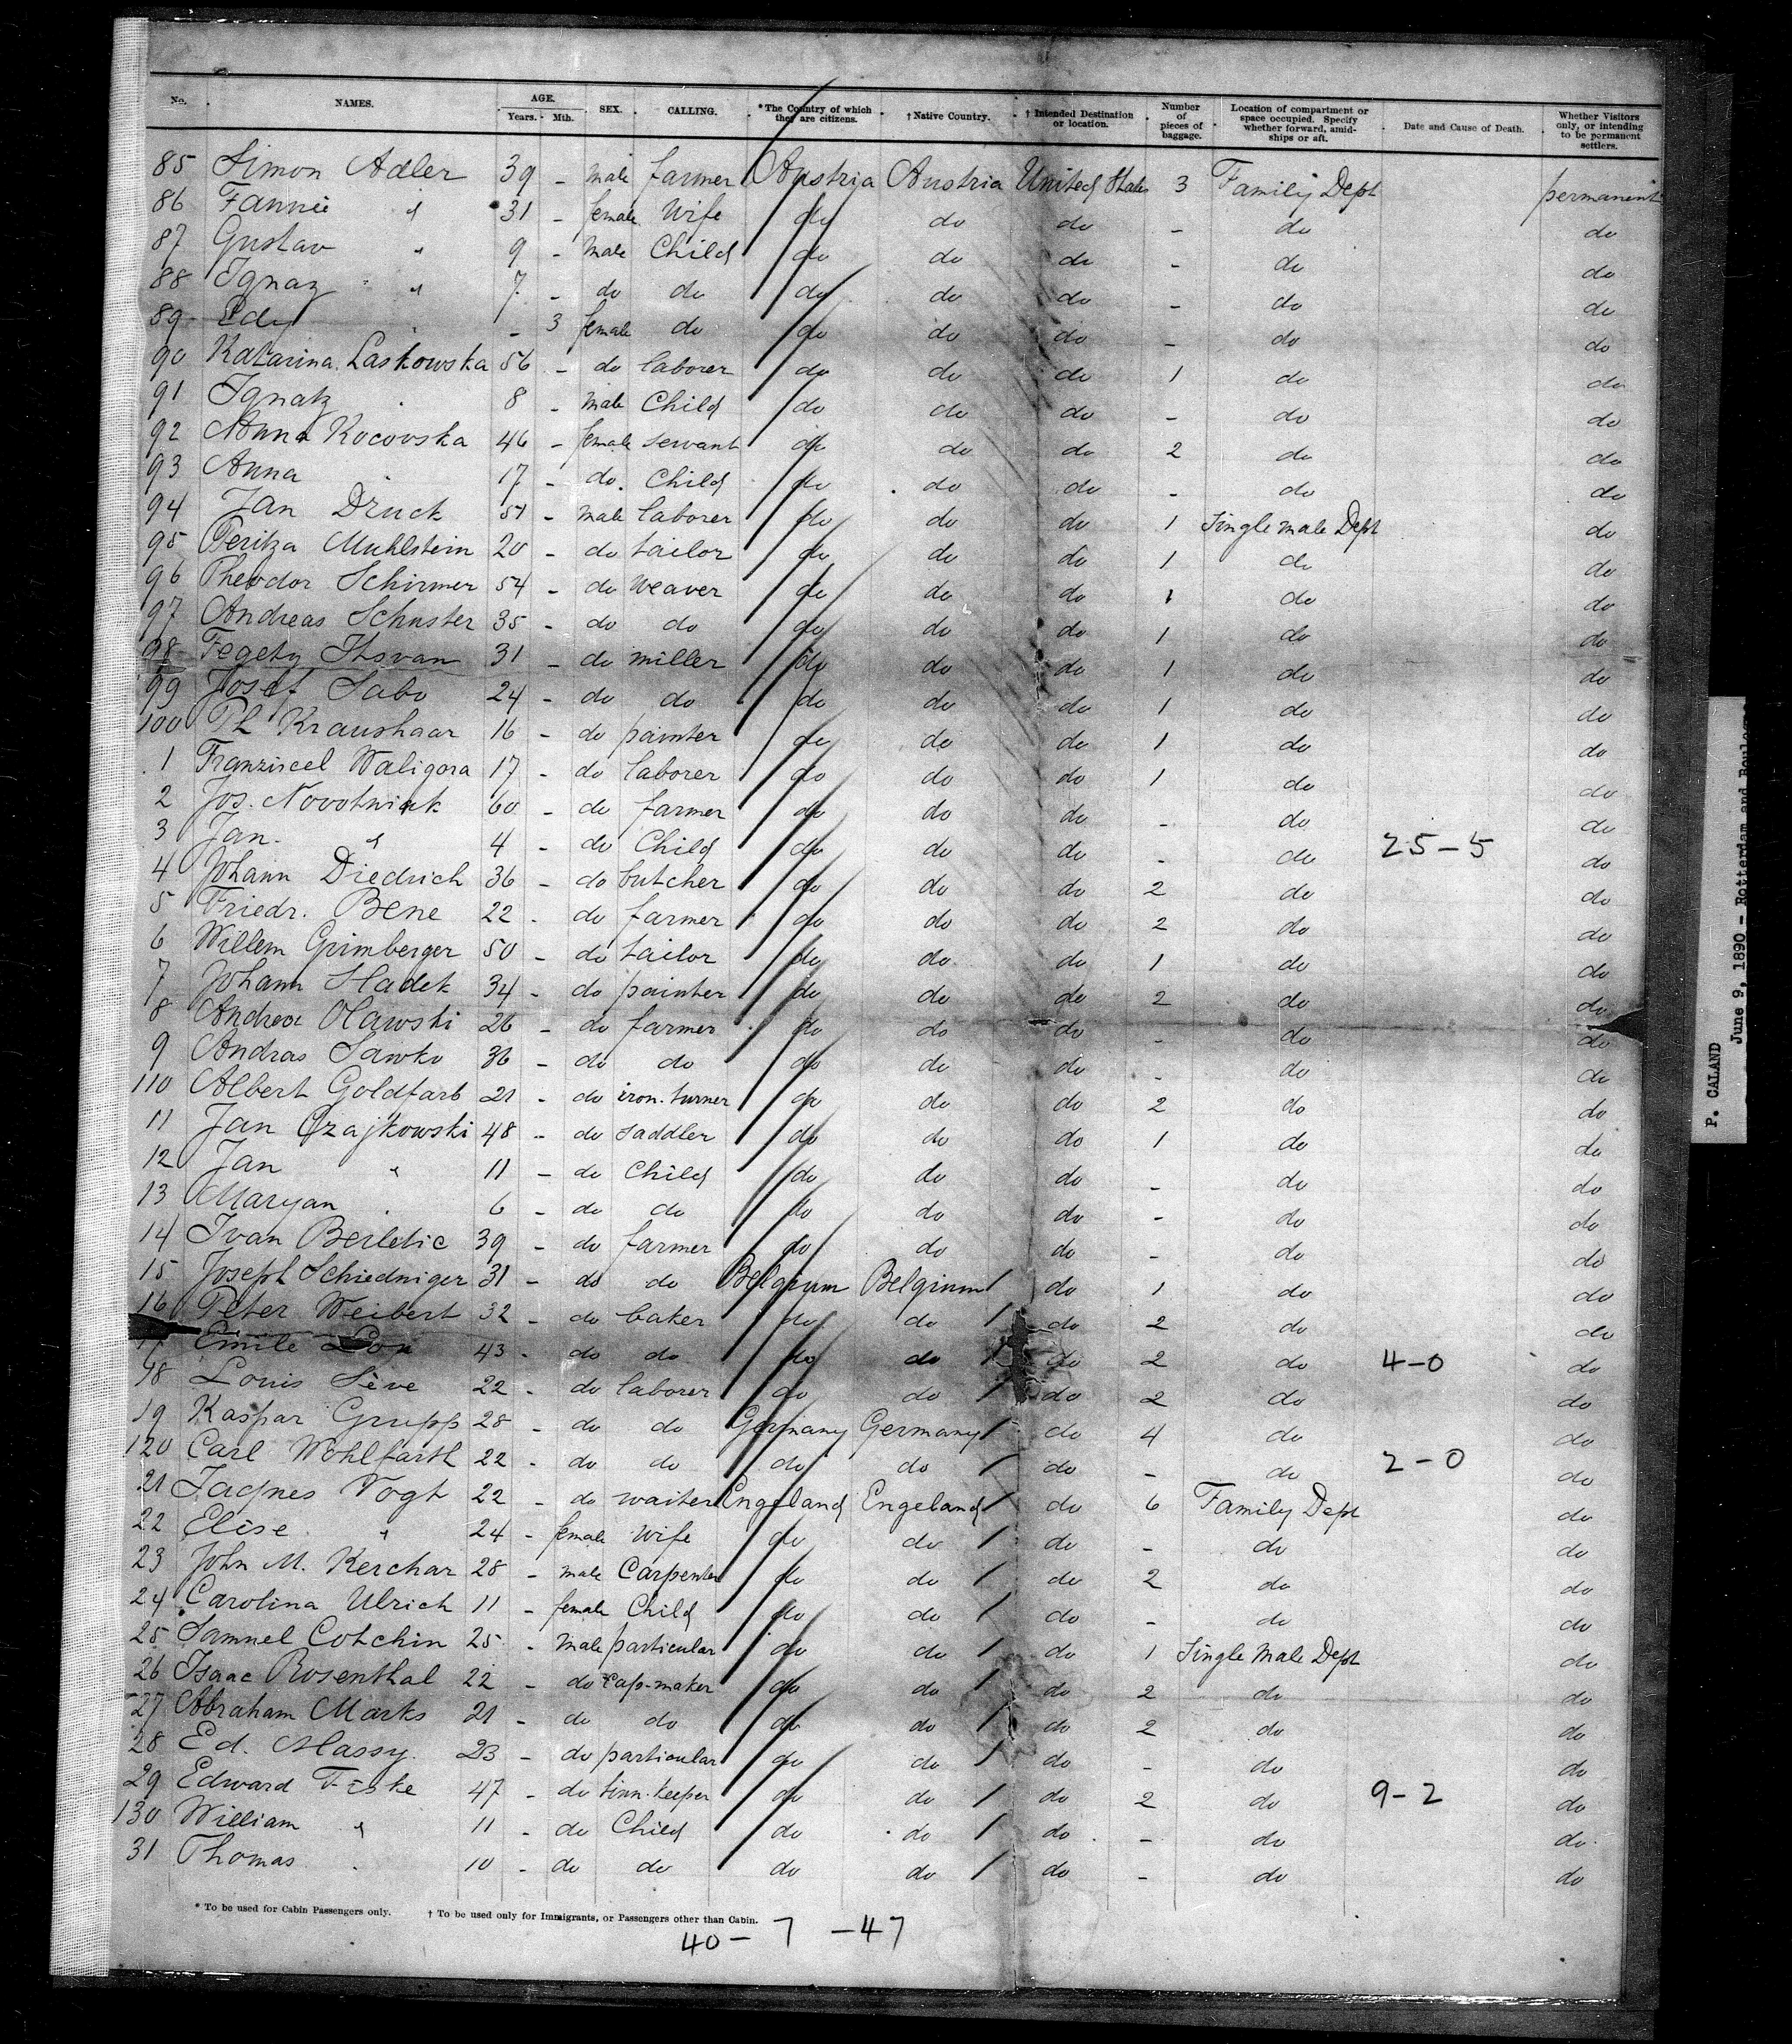 No. NAMES. AGE. Years. Mth. SEX. CALLING. *The Country of which they are citizens. †Native Country. † Intended Destination or location. Number of pieces of baggage. Location of compartment or space occupied. Specify whether forward, amidships or aft. Date and Cause of Death. Whether Visitors only, or intending to be permanent settlers.
85 Simon Adler 39 - male farmer Austria Austria United States 3 Family Dept permanent
86 Fannie " 31 - female Wife do do do - do do
87 Gustav " 9 - male Child do do do - do do
88 Ignaz " 7 - do do do do do - do do
89 Edy - 3 female do do do do - do do
90 Katarina Laskowska 56 - do laborer do do do 1 do do
91 Ignatz 8 - male Child do do do - do do
92 Anna Kocovska 46 - female servant do do do 2 do do
93 Anna 17 - do. Child do do do - do do
94 Jan Druck 51 - male laborer do do do 1 Single male Dept do
95 Peritza Muhlstein 20 - do tailor do do do 1 do do
96 Theodor Schirmer 54 - do weaver do do do 1 do do
97 Andreas Schuster 35 - do do do do do 1 do do
98 Fegety Itsvan 31 - do miller do do do 1 do do
99 Josef Sabo 24 - do do do do do 1 do do
100 Ph Kraushaar 16 - do painter do do do 1 do do
1 Franziscel Waligora 17 - do laborer do do do 1 do do
2 Jos. Novotniak 60 - do farmer do do do - do do
3 Jan. " 4 - do Child do do do - do 25-5 do
4 Johann Diedrich 36 - do butcher do do do 2 do do
5 Friedr. Bene 22 - do farmer do do do 2 do do
6 Willem Grimberger 50 - do tailor do do do 1 do do
7 Johann Hadek 34 - do painter do do do 2 do do
8 Andrea Olawski 26 - do farmer do do do - do do
9 Andras Sawko 36 - do do do do do - do do
110 Albert Goldfarb 21 - do iron-turner do do do 2 do do
11 Jan Czajkowski 48 - do saddler do do do 1 do do
12 Jan " 11 - do Child do do do - do do
13 Maryan 6 - do do do do do - do do
14 Ivan Berletic 39 - do farmer do do do - do do
15 Joseph Schiedniger 31 - do do Belgium Belgium do 1 do do
16 Peter Weibert 32 - do baker do do do 2 do do
17 Emile 43 - do do do do do 2 do 4-0 do
18 Louis Sève 22 - do laborer do do do 2 do do
19 Kaspar Grupp 28 - do do Germany Germany do 4 do do
120 Carl Wohlfarth 22 - do do do do do - do 2-0 do
21 Jacques Vogt 22 - do waiter Engeland Engeland do 6 Family Dept do
22 Elise " 24 - female Wife do do do - do do
23 John M. Kerchar 28 - male Carpenter do do do 2 do do
24 Carolina Ulrich 11 - female Child do do do - do do
25 Samuel Cotchin 25 - male particular do do do 1 Single male Dept do
26 Isaac Rosenthal 22 - do cap-maker do do do 2 do do
27 Abraham Marks 21 - do do do do do 2 do do
28 Ed. Massy. 23 - do particular do do do - do do
29 Edward 47 - do do do do 2 do 9-2 do
130 William " 11 - do Child do do do - do do
31 Thomas 10 - do do do do do - do do
* To be used for Cabin Passengers only. † To be used only for Immigrants, or Passengers other than Cabin.
40 - 7 - 47
P. CALAND
June 9, 1890 - Rotterdam and Boulogne